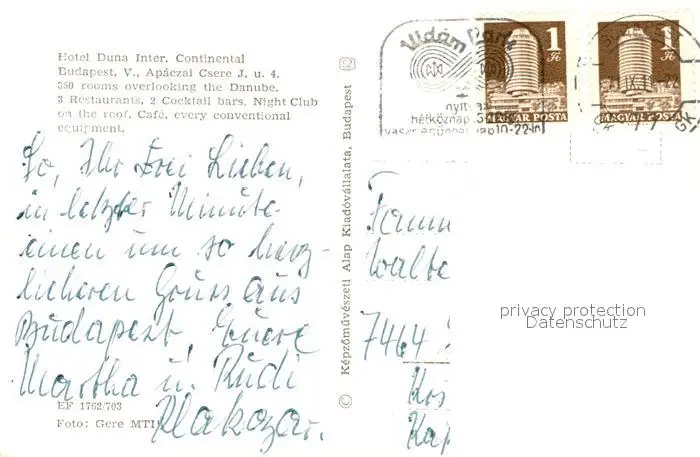 Hotel Duna Inter. Continental
Budapest, V., Apáczai Csere J. u. 4.
350 rooms overlooking the Danube.
3 Restaurants, 2 Cocktail bars, Night Club
on the roof, Café, every conventional
equipment.
So, Ihr Drei Lieben,
in letzter Minute
einen um so herz-
licheren Gruss aus
Budapest, Euere
Martha u. Rudi
EF 1762/703
Foto: Gere MTI
© Képzőművészeti Alap Kiadóvállalata, Budapest
Vidám Park
hétköznap
10-22-ig
1 Ft
MAGYAR POSTA
1 Ft
MAGYAR POSTA
Famm
Walte
7464
privacy protection
Datenschutz